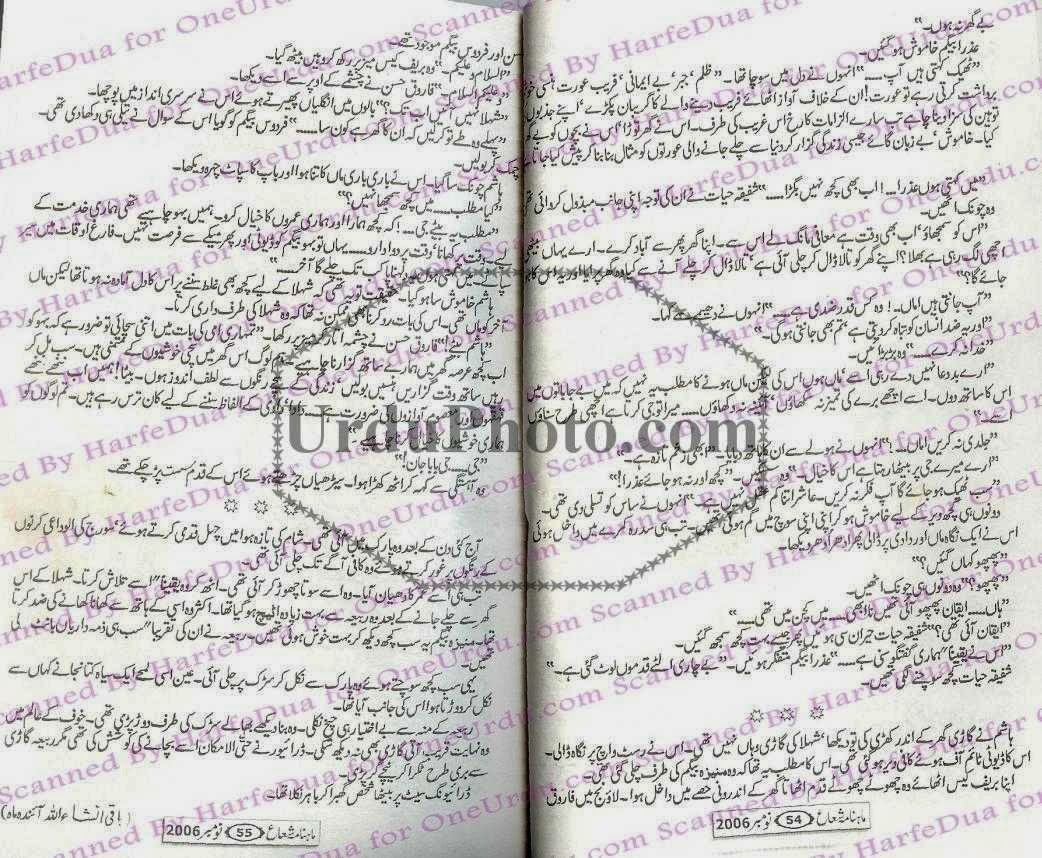 بے گھر نہ ہوں۔"
عذرا بیگم خاموش ہو گئیں۔
"ٹھیک کہتی ہیں آپ......" انہوں نے دل میں سوچا تھا۔ "ظلم، جبر، بے ایمانی، فریب عورت ہنسی خوشی
برداشت کرتی رہے تو عورت! ان کے خلاف آواز اٹھائے فریب دینے والے کا گریبان پکڑے، اپنے جذبوں
توہین کی سزا دینا چاہے تب سارے الزامات کا رخ اس غریب کی طرف۔ اس نے گھر توڑا، اس نے بچوں کو بے گھر
کیا۔ خاموش، بے زبان گائے جیسی زندگی گزار کر دنیا سے چلے جانے والی عورتوں کو مثال بنا بنا کر پیش کیا جاتا
"میں کہتی ہوں عذرا...! اب بھی کچھ نہیں بگڑا......" شفیقہ حیات نے ان کی توجہ اپنی جانب مبذول کروائی تھی
وہ چونک اٹھیں۔
"اس کو سمجھاؤ، اب بھی وقت ہے معافی مانگ لے اس سے۔ اپنا گھر پھر سے آباد کرے۔ ارے یہاں بیٹھی
اچھی لگ رہی ہے بھلا؟ اپنے گھر کو تالا ڈال کر چلی آئی ہے، تالا ڈال کر چلے آنے سے کیا وہ گھر پرایا
جائے گا؟"
"آپ جانتی ہیں اماں۔! وہ کس قدر ضدی ہے۔" انہوں نے دھیمے سے کہا۔
"اور یہ ضد انسان کو تباہ کر دیتی ہے، تم بھی جانتی ہو گی۔"
"خدا نہ کرے......" وہ بڑبڑائیں۔
"ارے بددعا نہیں دے رہی اسے، ماں ہوں اس کی ماں ہونے کا مطلب یہ نہیں کہ میں بے جا باتوں میں
اس کا ساتھ دوں۔ اسے اچھے برے کی تمیز نہ سکھاؤں نہ دکھاؤں...... میرا تو جی کرتا ہے اچھی طرح سناؤں
اسے...."
"جلدی نہ کریں اماں....!" انہوں نے ہولے سے ان کا ہاتھ دبایا۔ "ابھی زخم تازہ ہے۔"
"ارے میرے جی پر بیٹھا رہتا ہے اس کا خیال۔ "کچھ اور نہ ہو جائے عذرا!"
"سب ٹھیک ہو جائے گا آپ فکر نہ کریں۔ عاشر اتنا کم عقل نہیں ہے۔" انہوں نے ساس کو تسلی دی تھی۔
دونوں ہی کچھ دیر کے لیے خاموش ہو کر اپنی اپنی سوچ میں گم ہو گئی تھیں۔ تب ہی سدرہ کمرے میں داخل ہوئی
اس نے ایک نگاہ ماں اور دادی پر ڈالی پھر ادھر ادھر دیکھا۔
"پھپھو کہاں گئیں؟"
"پھپھو؟" وہ دونوں ہی چونک اٹھیں۔
"ہاں.... ایقان پھپھو آئی تھیں نا ابھی.... میں کچن میں تھی......
"ایقان آئی تھی؟" شفیقہ حیات حیران سی ہو میں پھر جیسے بہت کچھ سمجھ گئیں۔
"اس نے یقیناً ہماری گفتگو سنی ہے......" عذرا بیگم متفکر ہو میں۔ "بے چاری الٹے قدموں لوٹ گئی ہے۔"
شفیقہ حیات کچھ سوچنے لگی تھیں۔
ہاشم نے گاڑی گھر کے اندر کھڑی کی تو دیکھا، شہلا کی گاڑی وہاں نہیں تھی۔ اس نے رسٹ واچ پر نگاہ ڈالی۔
اس کا ڈیوٹی ٹائم آف ہوئے کافی دیر ہو چکی تھی۔ اس کا مطلب یہ تھا کہ وہ منیزہ بیگم کی طرف چلی گئی تھی۔
اپنا بریف کیس اٹھائے وہ چھوٹے چھوٹے قدم اٹھاتا گھر کے اندرونی حصے میں داخل ہوا۔ لاؤنج میں فاروق
ماہنامہ شعاع 54 نومبر 2006
حسن اور فردوس بیگم موجود تھے۔
"السلام و علیکم۔" وہ بریف کیس میز پر رکھ کر وہیں بیٹھ گیا۔
"وعلیکم السلام۔" فاروق حسن نے چشمے کے اوپر سے اسے دیکھا۔
"شہلا نہیں آئیں اب تک؟" بالوں میں انگلیاں پھیرتے ہوئے اس نے سرسری انداز میں پوچھا۔
"پہلے وہ طے تو کر لیں کہ ان کا گھر ہے کون سا......" فردوس بیگم کو گویا اس کے سوال نے تیلی ہی دکھا دی تھی۔
چمک کر بولیں۔
ہاشم چونک سا گیا۔ اس نے باری باری ماں کا تنا ہوا اور باپ کا سپاٹ چہرہ دیکھا۔
"کیا مطلب...... میں کچھ سمجھا نہیں؟"
"مطلب یہ بیٹے جی...! کہ کچھ ہمارا اور ہماری عمروں کا خیال کرو۔ ہمیں بہو چاہیے تھی ہماری خدمت کے
لیے وقت پر کھانا، وقت پر دوا دارو.... یہاں تو بہو بیگم کو ڈیوٹی اور پھر میکے سے فرصت نہیں۔ فارغ اوقات میں بیر
کب تک چلے گا آخر......"
ہاشم خاموش سا ہو گیا۔ حقیقت تو یہ تھی شہلا کے لیے کچھ بھی غلط سننے پر اس کا دل آمادہ نہ ہوتا تھا لیکن ماں
آخر کو ماں تھی۔ اس کی بات رد کرنا بھی ممکن نہ تھا کہ وہ شہلا کی طرف داری کرتا۔
"ہاشم بیٹے!" فاروق حسن نے چشمہ اتار کر میز پر رکھا۔ "تمہاری امی کی بات میں اتنی سچائی تو ضرور ہے کہ بہو کو
اب کچھ عرصہ گھر میں ہمارے ساتھ گزارنا چاہیے۔ ہم لوگ اس گھر میں سچی خوشیوں کے متمنی ہیں۔ سب مل کر
رہیں ساتھ وقت گزاریں، ہنسیں بولیں، زندگی کے رنگوں سے لطف اندوز ہوں۔ بیٹا! ہمیں اب ننھے ننھے
قدموں اور معصوم آوازوں کی ضرورت ہے۔ دادا، دادی کے الفاظ سننے کے لیے کان ترس رہے ہیں۔ تم لوگوں کو
ہماری خوشی کا خیال کرنا چاہیے۔"
"جی.... جی بابا جان!"
وہ آہستگی سے کہہ کر اٹھ کھڑا ہوا۔ سیڑھیاں چڑھتے ہوئے اس کے قدم سست پڑ چکے تھے۔
آج کئی دن کے بعد وہ پارک میں آئی تھی۔ شام کی تازہ ہوا میں چہل قدمی کرتے ہوئے، سورج کی الوداعی کرنوں
کے رنگوں پر غور کرتے ہوئے وہ کافی آگے تک چلی آئی تھی۔
تب ہی اسے کا دھیان آیا۔ وہ اسے سوتا چھوڑ کر آئی تھی۔ اٹھ کر وہ یقیناً اسے تلاش کرتا۔ شہلا کے اس
گھر سے چلے جانے کے بعد وہ ربیعہ سے بہت زیادہ اٹیچ ہو گیا تھا۔ اکثر وہ اسی کے ہاتھ سے کھانا کھانے کی ضد کرتا
تھا۔ منیزہ بیگم یہ سب کچھ دیکھ کر بہت خوش ہوتی تھیں۔ ربیعہ نے ان کی تقریباً سب ہی ذمہ داریاں بانٹ لی
تھیں۔
یہی سب کچھ سوچتے ہوئے وہ پارک سے نکل کر سڑک پر چلی آئی۔ عین اسی لمحے ایک سیاہ کتا نجانے کہاں سے
نکل کر دوڑتا ہوا اس کی جانب آیا تھا۔
ربیعہ کے منہ سے بے اختیار ہی چیخ نکلی۔ وہ بنا دیکھے بھالے سڑک کی طرف دوڑ پڑی تھی۔ خوف کے عالم میں
وہ نہایت قریب آتی گاڑی بھی نہ دیکھ سکی۔ ڈرائیور نے حتی الامکان اسے بچانے کی کوشش کی تھی مگر ربیعہ گاڑی
سے بری طرح ٹکرا کر نیچے گر پڑی۔
ڈرائیونگ سیٹ پر بیٹھا شخص گھبرا کر باہر نکلا تھا۔
(باقی انشاء اللہ آئندہ ماہ)
ماہنامہ شعاع 55 نومبر 2006
UrduPhoto.com
Scanned By HarfeDua for OneUrdu.com